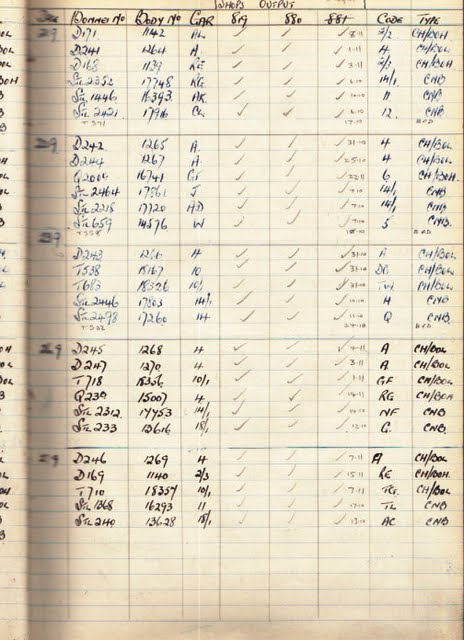 SHOPS OUTPUT
BONNET NO BODY NO GAR 819 880 881 CODE TYPE
29 D171 1142 AL ✓ ✓ ✓ 8-11 2/2 CH/BOH
D241 1264 A. ✓ ✓ ✓ 1-11 4 CH/BOL
D168 1139 RE ✓ ✓ ✓ 3-11 2/3 CH/BOH
STL 2352 17748 RG ✓ ✓ ✓ 6-10 14/1 CNB
STL 1446 16393 AK ✓ ✓ ✓ 10-10 11 CNB
STL 2421 17916 CL ✓ ✓ ✓ 6-10 12. CNB
29 D242 1265 A. ✓ ✓ ✓ 31-10 4 CH/BOL
D244 1267 A. ✓ ✓ ✓ 25-10 4 CH/BOL
Q2009 16741 GF ✓ ✓ ✓ 22-11 6 CH/BOH
STL 2464 17861 J ✓ ✓ ✓ 7-10 14/1 CNB
STL 2215 17720 AD ✓ ✓ ✓ 7-10 14/1 CNB
STL 659 14576 W ✓ ✓ ✓ 7-10 5 CNB
29
D243 1266 4 ✓ ✓ ✓ 31-10 A CH/BOL
T538 18167 10 ✓ ✓ ✓ 31-10 CH/BOL
T683 18326 10/1 ✓ ✓ ✓ 31-10 TW CH/BOL
STL 2446 17803 14/1 ✓ ✓ ✓ H CNB
STL 2498 17260 14 ✓ ✓ ✓ Q CNB
29 D245 1268 4 ✓ ✓ ✓ 4-11 A CH/BOL
D247 1270 4 ✓ ✓ ✓ 3-11 A CH/BOL
T718 18356 10/1 ✓ ✓ ✓ 3-11 GF CH/BOL
Q239 15007 4 ✓ ✓ ✓ 14-11 RG CH/BOH
STL 2312 17453 14/1 ✓ ✓ ✓ NF CNB
STL 233 13616 18/1 ✓ ✓ ✓ 12-10 G. CNB
29 D246 1269 4 ✓ ✓ ✓ 7-11 A CH/BOL
D169 1140 2/3 ✓ ✓ ✓ 15-11 RE CH/BOH
T710 18357 10/1 ✓ ✓ ✓ 7-11 CH/BOL
STL 1368 16293 11 ✓ ✓ ✓ 17-10 TL CNB
STL 240 13628 18/1 ✓ ✓ ✓ 13-10 AC CNB